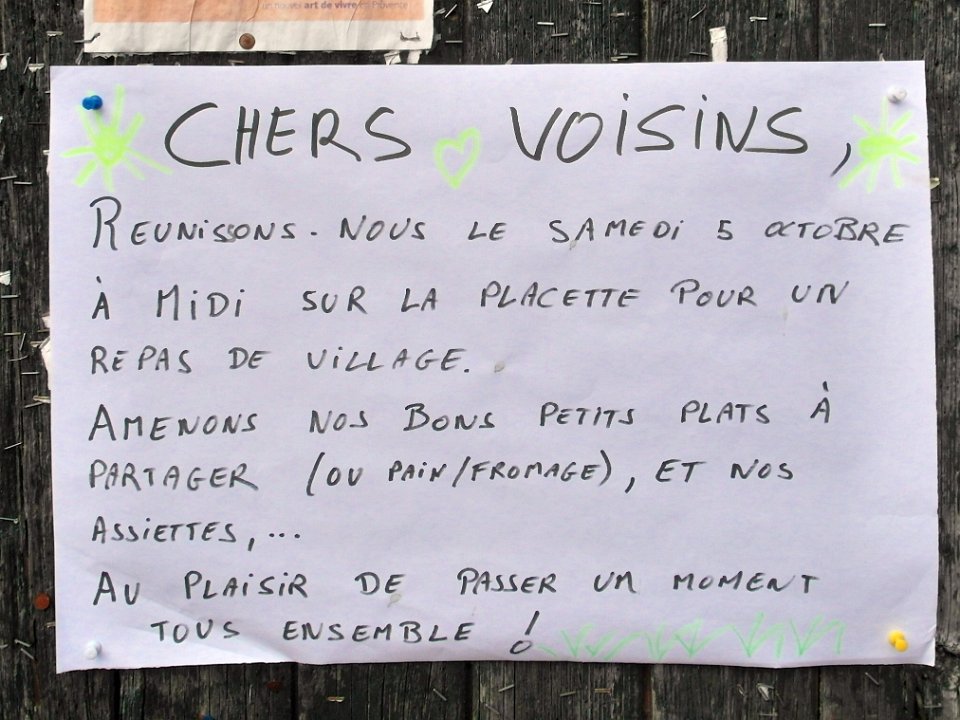 un nouvel art de vivre en Provence
CHERS VOISINS,
REUNISSONS-NOUS LE SAMEDI 5 OCTOBRE
À MIDI SUR LA PLACETTE POUR UN
REPAS DE VILLAGE.
AMENONS NOS BONS PETITS PLATS À
PARTAGER (OU PAIN/FROMAGE), ET NOS
ASSIETTES,...
AU PLAISIR DE PASSER UN MOMENT
TOUS ENSEMBLE !